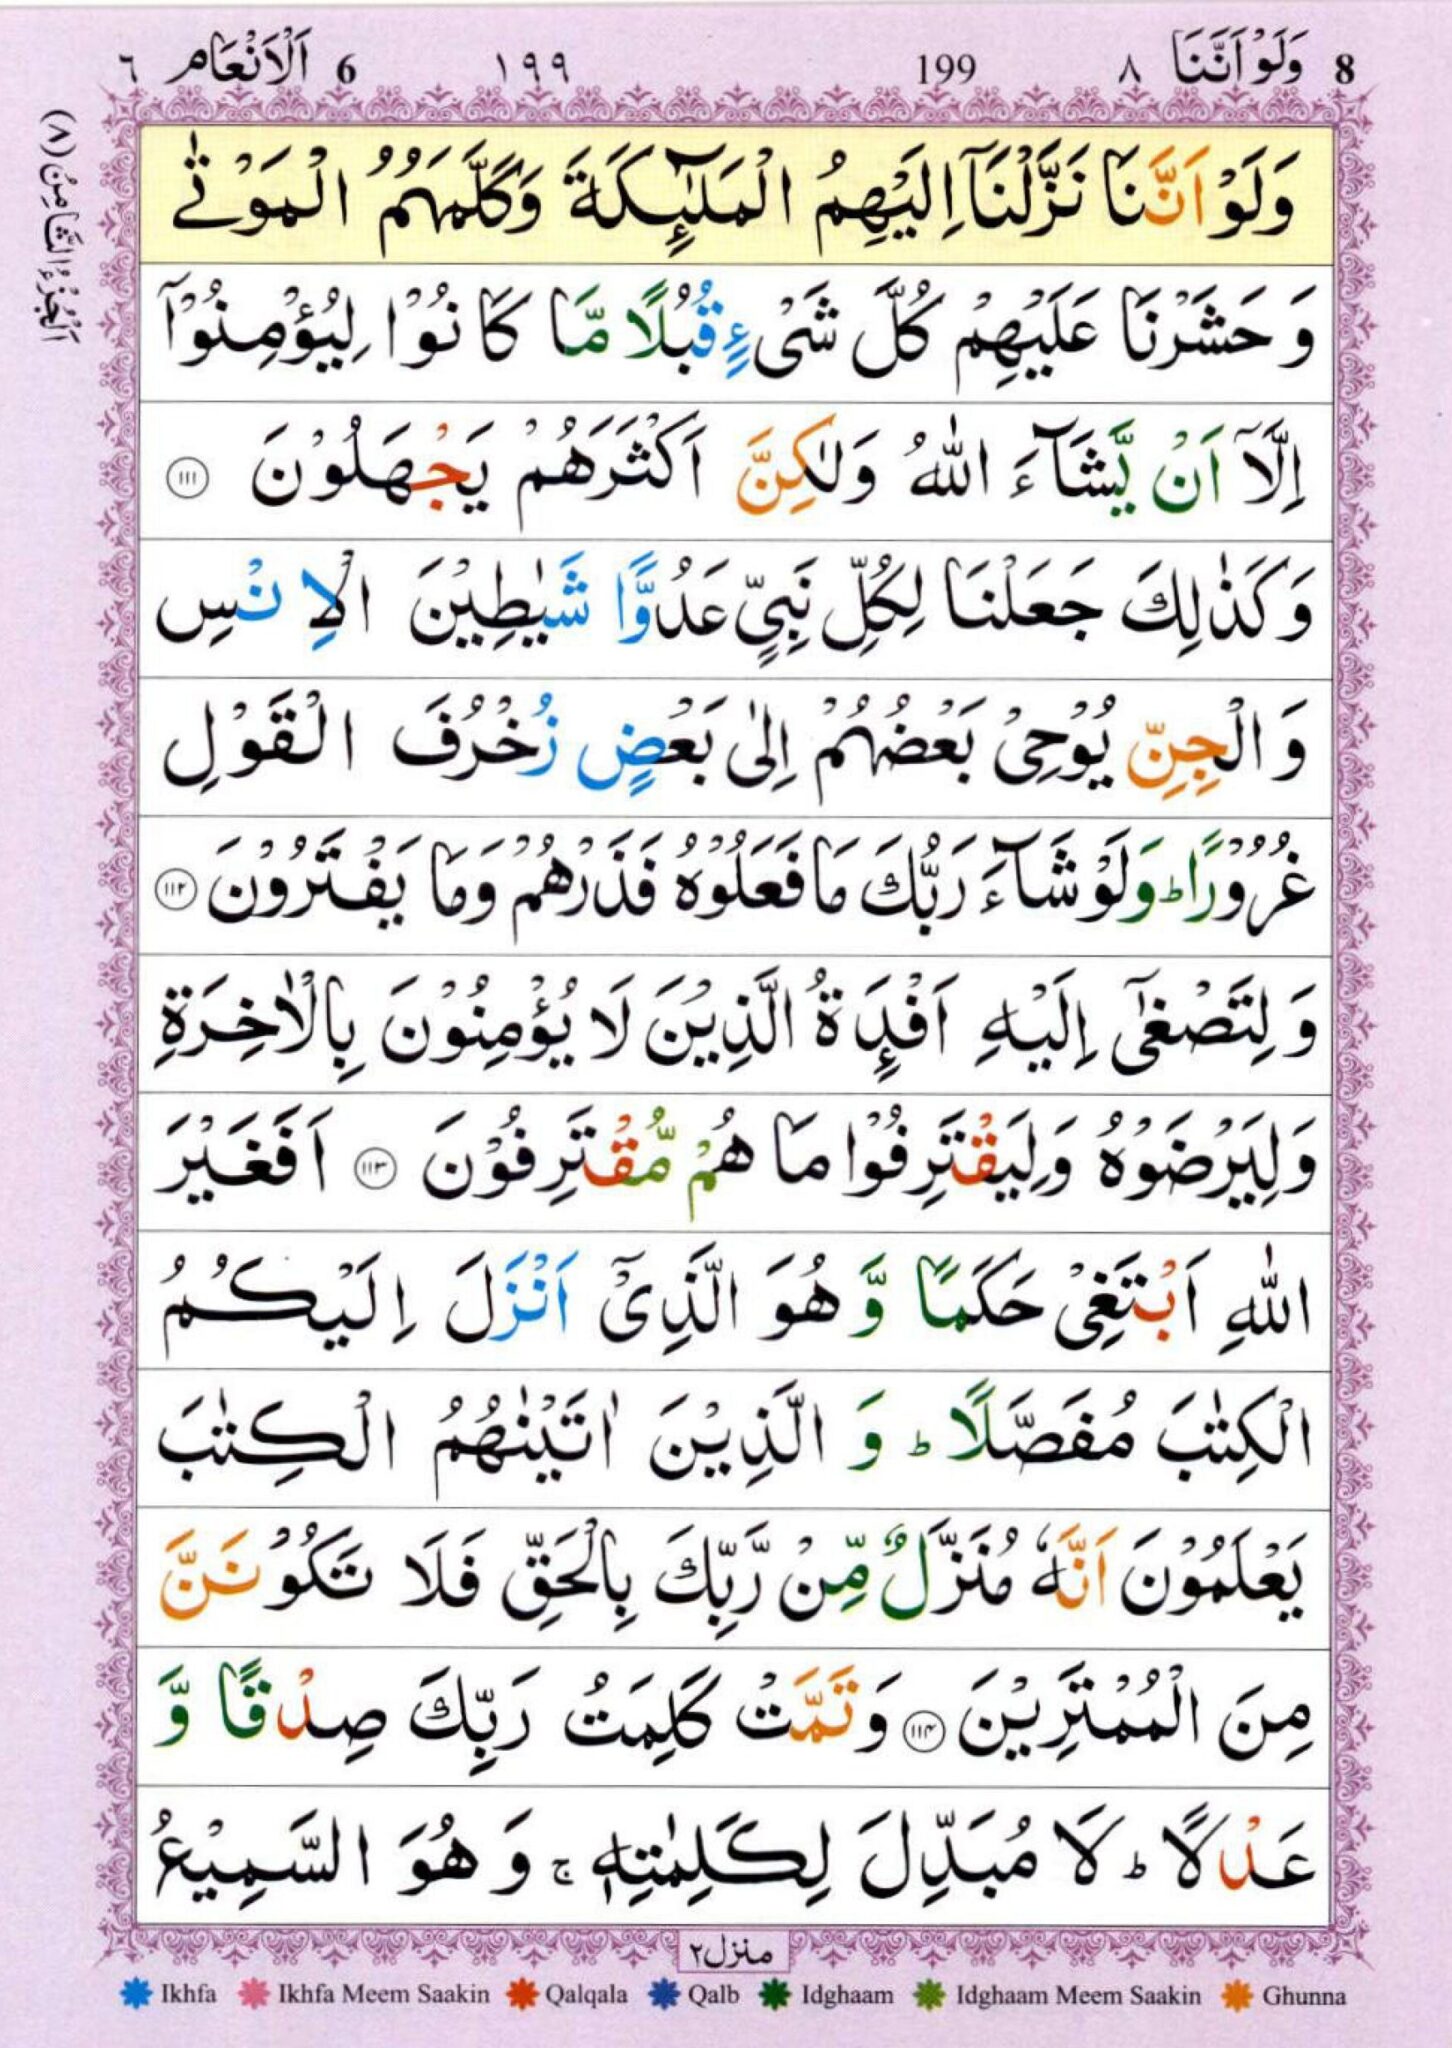 8 وَلَوْ اَنَّنَا ٨ 199 ١٩٩ 6 اَلْاَنْعَام ٦
اَلْجُزْءُ الثَّامِنُ (٨)
وَلَوْ اَنَّنَا نَزَّلْنَاۤ اِلَيْهِمُ الْمَلٰٓئِكَةَ وَكَلَّمَهُمُ الْمَوْتٰى
وَ حَشَرْنَا عَلَيْهِمْ كُلَّ شَىْءٍ قُبُلًا مَّا كَانُوْا لِيُؤْمِنُوْۤا
اِلَّاۤ اَنْ يَّشَآءَ اللّٰهُ وَلٰكِنَّ اَكْثَرَهُمْ يَجْهَلُوْنَ ١١١
وَكَذٰلِكَ جَعَلْنَا لِكُلِّ نَبِىٍّ عَدُوًّا شَيٰطِيْنَ الْاِنْسِ
وَ الْجِنِّ يُوْحِىْ بَعْضُهُمْ اِلٰى بَعْضٍ زُخْرُفَ الْقَوْلِ
غُرُوْرًا ؕ وَلَوْ شَآءَ رَبُّكَ مَا فَعَلُوْهُ فَذَرْهُمْ وَمَا يَفْتَرُوْنَ ١١٢
وَ لِتَصْغٰۤى اِلَيْهِ اَفْـِٕدَةُ الَّذِيْنَ لَا يُؤْمِنُوْنَ بِالْاٰخِرَةِ
وَلِيَرْضَوْهُ وَلِيَقْتَرِفُوْا مَا هُمْ مُّقْتَرِفُوْنَ ١١٣ اَفَغَيْرَ
اللّٰهِ اَبْتَغِىْ حَكَمًا وَّ هُوَ الَّذِىْۤ اَنْزَلَ اِلَيْكُمُ
الْكِتٰبَ مُفَصَّلًا ؕ وَ الَّذِيْنَ اٰتَيْنٰهُمُ الْكِتٰبَ
يَعْلَمُوْنَ اَنَّهٗ مُنَزَّلٌ مِّنْ رَّبِّكَ بِالْحَقِّ فَلَا تَكُوْنَنَّ
مِنَ الْمُمْتَرِيْنَ ١١٤ وَتَمَّتْ كَلِمَتُ رَبِّكَ صِدْقًا وَّ
عَدْلًا ؕ لَا مُبَدِّلَ لِكَلِمٰتِهٖ ۚ وَ هُوَ السَّمِيْعُ
منزل٢
Ikhfa Ikhfa Meem Saakin Qalqala Qalb Idghaam Idghaam Meem Saakin Ghunna